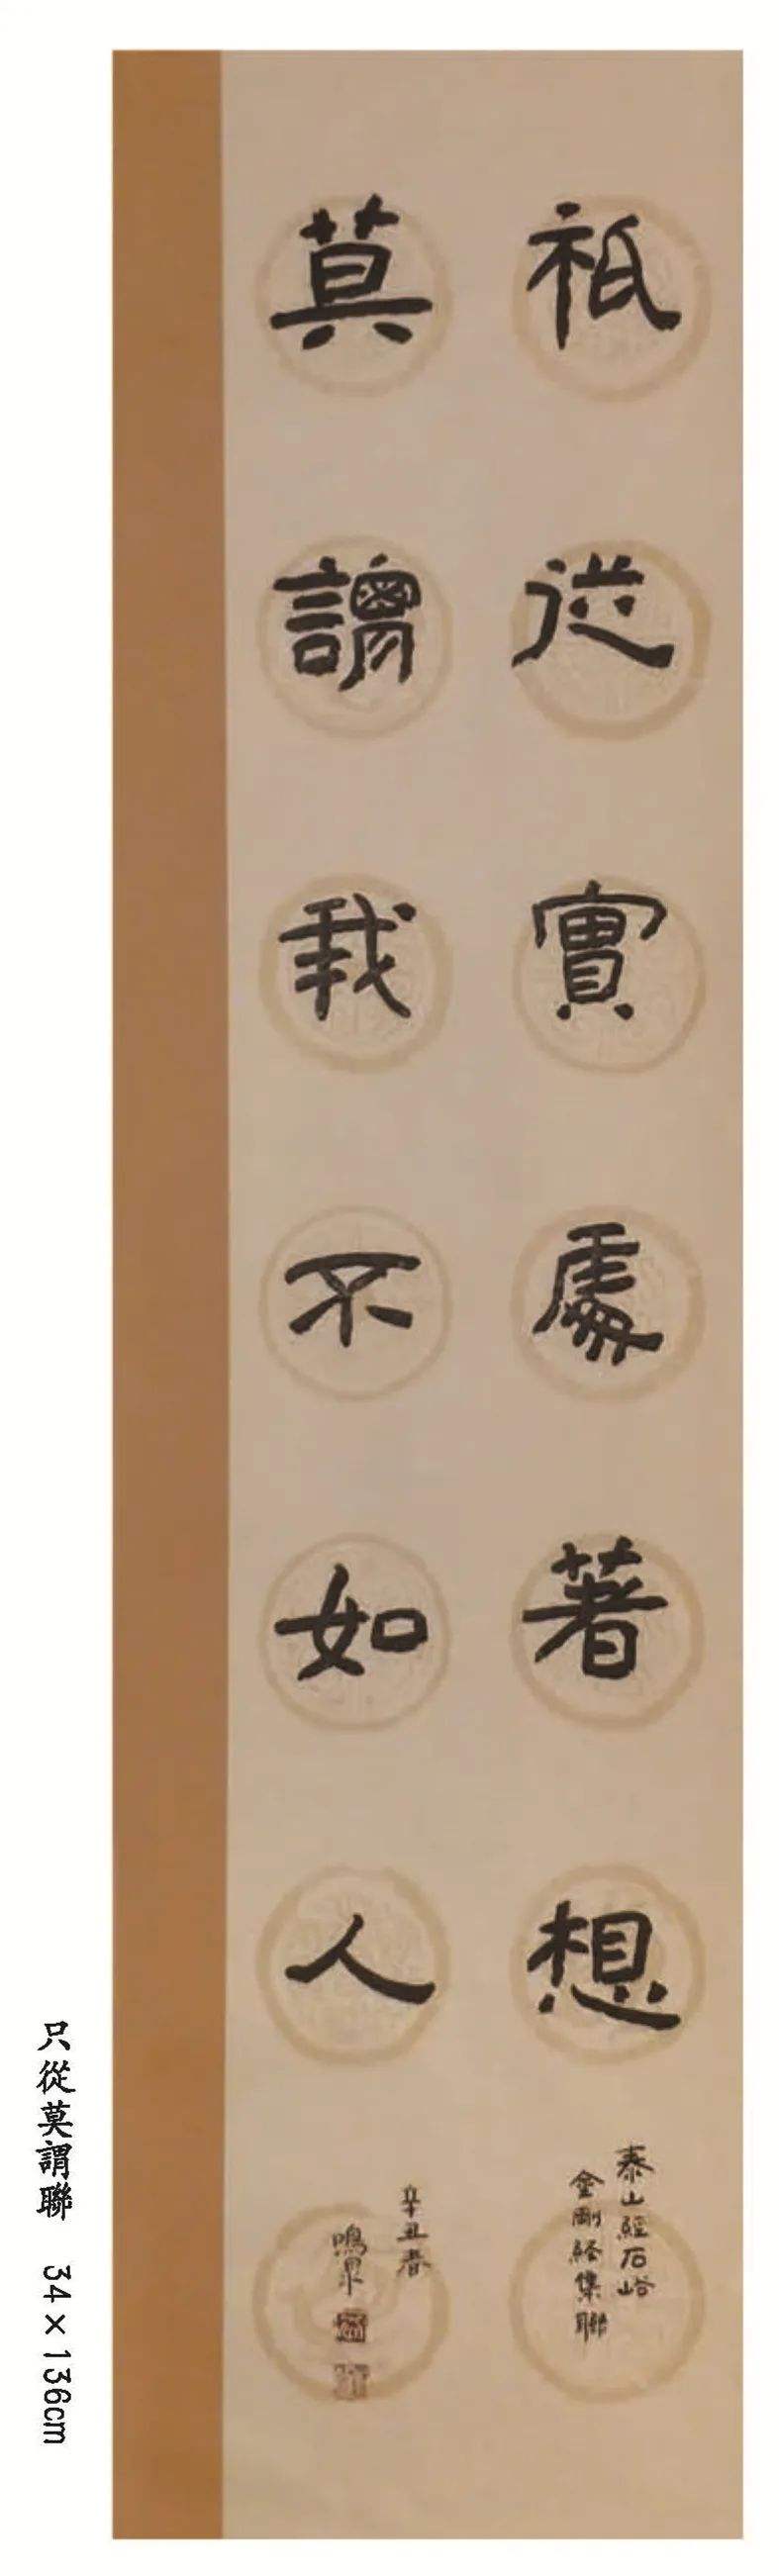 祇從實處著想
泰山經石峪
金剛經集聯
莫謂我不如人
辛丑春
鳴泉
只從莫謂聯 34×136cm